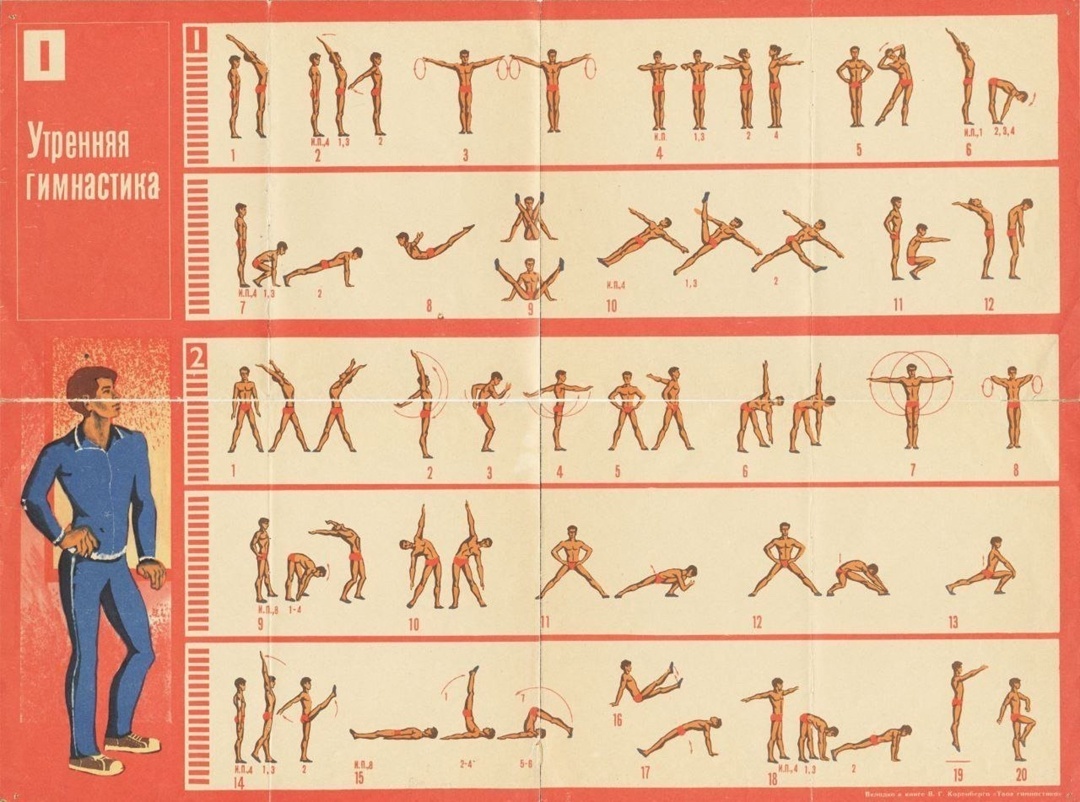 I
Утренняя
гимнастика
1
И.П.,4 1,3 2 И.П. 1,3 2 4 И.П.,1 2,3,4
1 2 3 4 5 6
И.П.,4 1,3 2 И.П.,4 1,3 2
7 8 9 10 11 12
2
1 2 3 4 5 6 7 8
И.П.,8 1-4
9 10 11 12 13
16
И.П.,4 1,3 2 И.П.,8 2-4 5-6 17 И.П.,4 1,3 2
14 15 18 19 20
Вкладка к книге В. Г. Каренберга «Твоя гимнастика»